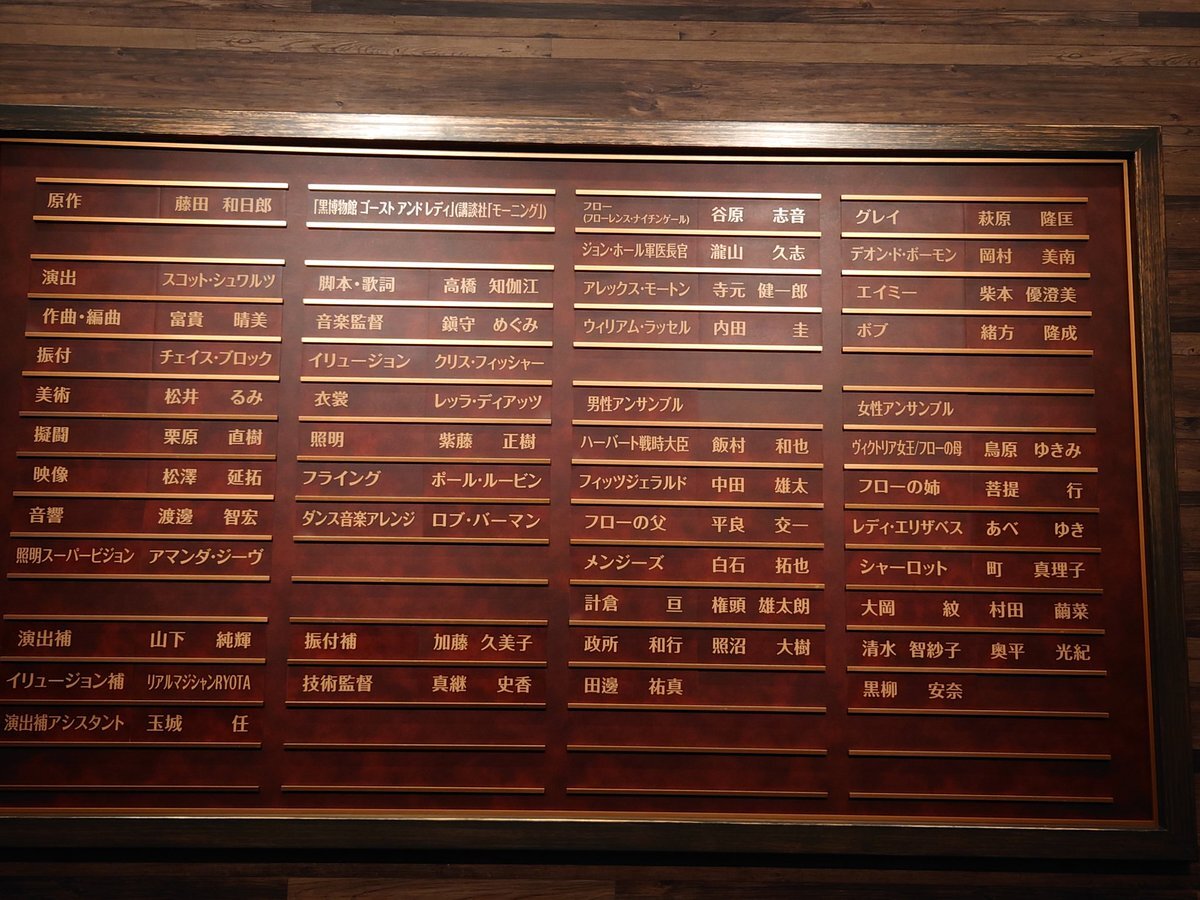 原作 藤田 和日郎
「黒博物館 ゴースト アンド レディ」(講談社「モーニング」)
演出 スコット・シュワルツ
作曲・編曲 富貴 晴美
振付 チェイス・ブロック
美術 松井 るみ
擬闘 栗原 直樹
映像 松澤 延拓
音響 渡邊 智宏
照明スーパービジョン アマンダ・ジーヴ
演出補 山下 純輝
イリュージョン補 リアルマジシャンRYOTA
演出補アシスタント 玉城 任
脚本・歌詞 高橋 知伽江
音楽監督 鎭守 めぐみ
イリュージョン クリス・フィッシャー
衣裳 レッラ・ディアッツ
照明 紫藤 正樹
フライング ポール・ルービン
ダンス音楽アレンジ ロブ・バーマン
振付補 加藤 久美子
技術監督 真継 史香
フロー
(フローレンス・ナイチンゲール) 谷原 志音
ジョン・ホール軍医長官 瀧山 久志
アレックス・モートン 寺元 健一郎
ウィリアム・ラッセル 内田 圭
男性アンサンブル
ハーバート戦時大臣 飯村 和也
フィッツジェラルド 中田 雄太
フローの父 平良 交一
メンジーズ 白石 拓也
計倉 亘 権頭 雄太朗
政所 和行 照沼 大樹
田邊 祐真
グレイ 萩原 隆匡
デオン・ド・ボーモン 岡村 美南
エイミー 柴本 優澄美
ボブ 緒方 隆成
女性アンサンブル
ヴィクトリア女王/フローの母 鳥原 ゆきみ
フローの姉 菩提 行
レディ・エリザベス あべ ゆき
シャーロット 町 真理子
大岡 紋 村田 繭菜
清水 智紗子 奥平 光紀
黒柳 安奈